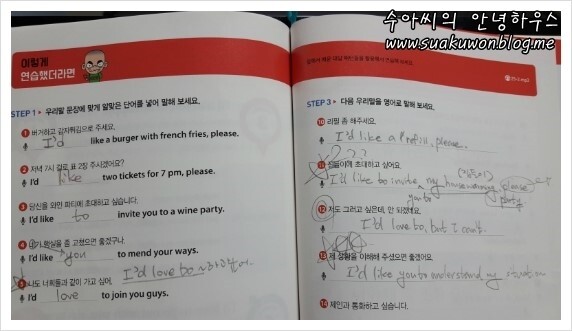 수아씨의 안녕하우스
www.suakuwon.blog.me
이렇게
연습했더라면
STEP 1 ▶ 우리말 문장에 맞게 알맞은 단어를 넣어 말해 보세요.
1 버거하고 감자튀김으로 주세요.
I'd like a burger with french fries, please.
2 저녁 7시 걸로 표 2장 주시겠어요?
I'd like two tickets for 7 pm, please.
3 당신을 와인 파티에 초대하고 싶습니다.
I'd like to invite you to a wine party.
4 네가 행실을 좀 고쳤으면 좋겠구나.
I'd like you to mend your ways.
I'd love to ~하고싶어.
5 나도 너희들과 같이 가고 싶어.
I'd love to join you guys.
STEP 3 ▶ 다음 우리말을 영어로 말해 보세요.
10 리필 좀 해주세요.
I'd like a refill, please.
??
11 집들이에 초대하고 싶어요.
(집들이)
I'd like to invite my housewarming please
you to party
12 저도 그러고 싶은데, 안 되겠네요.
I'd love to, but I can't.
13 제 상황을 이해해 주셨으면 좋겠어요.
I'd like you to understand my situation
14 제인과 통화하고 싶습니다.